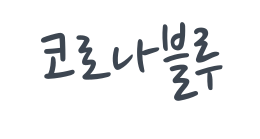 코로나블루